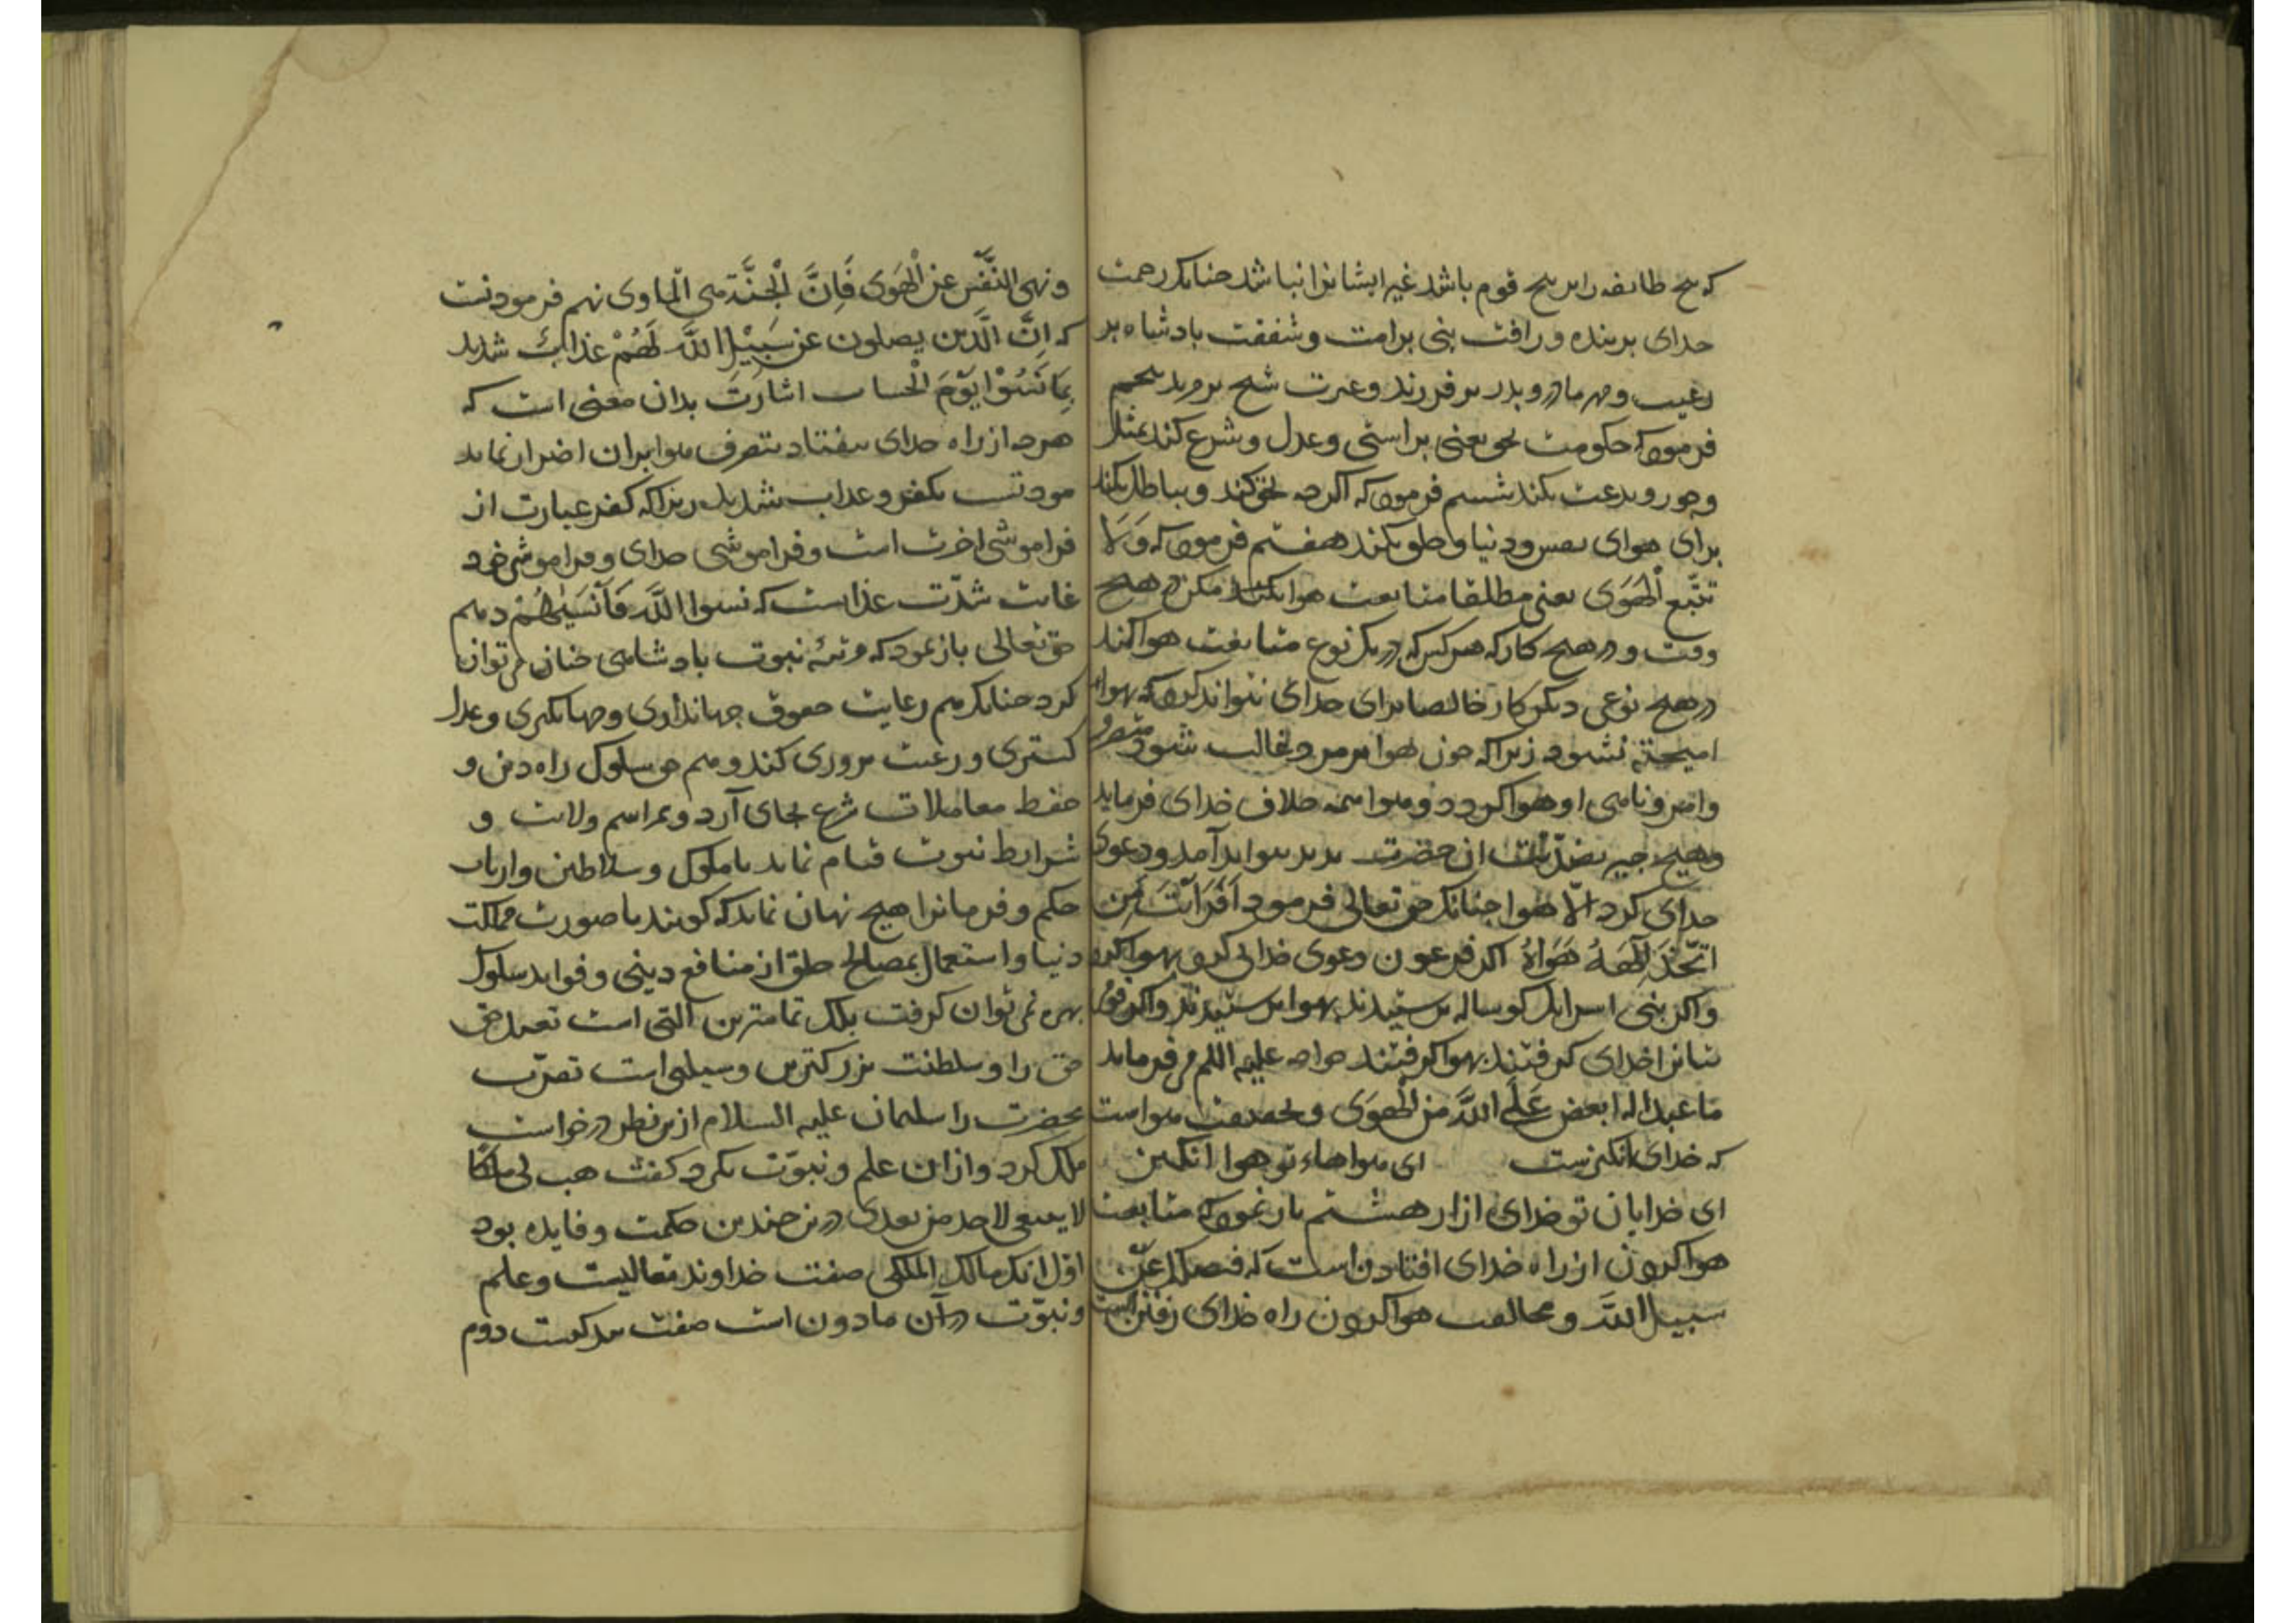 که هیچ طایفه را بر هیچ قوم باشد غیر ایشانرا نباشد چنانک رحمت
خدای بر بنده و رافت نبی بر امت و شفقت بادشاه بر
رعیت و مهر مادر و بدر بر فرزند و غیرت شیخ بر مرید پنجم
فرموده که حکومت بحق یعنی براستی و عدل و شرع کند بمثل
و جور و بدعت نکند ششم فرموده که اگر چه بحق کند و بباطل نکند
برای هوای نفس و دنیا و خلق نکند هفتم فرموده که وَلَا
تتّبع الْهَوَی یعنی مطلقا متابعت هوا مکن در هیچ
وقت و در هیچ کار که هر کس که در یک نوع متابعت هوا کند
در هیچ نوعی دیگر کار خالصا برای خدای نتواند کرد که بهوا
امیخته نشود زیرا که چون هوا بر مرد غالب شود متصرف
و امر و ناهی او هوا گردد و هوا همه خلاف خدای فرماید
و هیچ چیز بضدّیت ان حضرت بدید نیواند آمد و دعوی
خدای کرد الّا هوا چنانک حق تعالی فرمود اَفَرَاَیْتَ مَنِ
اتَّخَذَ اِلٰهَهُ هَوَاهُ اگر فرعون دعوی خدایی کرد بهوا کرد
و اگر بنی اسرایل کوساله برستیدند بهوا برستیدند و اگر قوم
بتانرا خدای گرفتند بهوا گرفتند خواجه علیه السلم می فرماید
ما عبد اله ابغض عَلَی اللَّه من الْهَوَی و بحقیقت هوا است
که خدای انگیزست ای هواهاء تو هوا انگیز
ای خدایان تو خدای ازار هشتم باز نموده که متابعت
هوا کردن از راه خدای افتادن است که فیضلک عن
سبیل اللَّه و مخالفت هوا کردن راه خدای رفتن است
و نهی النَّفْس عَن الْهَوَی فَاِنَّ الْجَنَّةَ هی الْماوی نهم فرمودنت
که اِنَّ الَّذین یضلون عن سَبِیْلِ اللَّه لَهُمْ عَذابٌ شدید
بِمَا نَسُوْا یَوْمَ الْحساب اشارت بدان معنی است که
هرچه از راه خدای بیفتاد بتصرف هوا بران اضرار نماید
مودتست بکفر و عذاب شدید زیرا که کفر عبارت از
فراموشی اخرت است و فراموشی خدای و فراموشی خود
غایت شدّت عذابست که نسوا اللَّه فَاَنْسٰیهُمْ دهم
حق تعالی باز نمود که مرتبه نبوت بادشاهی چنان می توان
کرد چنانک هم رعایت حقوق جهانداری و جهانگیری و عدل
گستری و رعیت بروری کند و هم حق سلوک راه دین و
حفظ معاملات شرع بجای آرد و بمراسم ولایت و
شرایط نبوت قیام نماید تا ملوک و سلاطین و ارباب
حکم و فرمانرا هیچ بهان نماند که گویند با صورت مملکت
دنیا و استعمال بمصالح خلق از منافع دینی و فواید سلوک
بهره نمی توان گرفت بلک تمامترین آلتی است تعبد حق
حق را و سلطنت بزرگترین وسیلتی است تقرّب
بحضرت را سلیمان علیه السلام ازین نظر درخواست
ملک کرد و از ان علم و نبوّت نکرد گفت هب لی ملکا
لا ینبغی لاحد من بعدی درین چندین حکمت و فایده بود
اوّل انک مالک الملکی صفت خداوند تعالیست و علم
و نبوّت در آن مادون است صفت بندگیست دوم